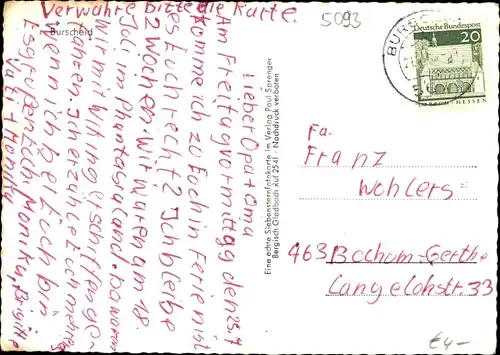 Verwahre bitte die Karte.
5093
Burscheid
Lieber Opa + Oma
Am Freitagvormittag den 23.7
komme ich zu Euch in Ferien ist
es Euch recht? Ich bleibe
2 Wochen. Wir waren am 18.
Juli im Phantasialand. Da waren
wir mit Wiking
fahren. Ich erzähle Euch mehr
wenn ich bei Euch bin
Es grüßen Euch Monika, Brigitte
Vati + Monika
Eine echte Siebensternfotokarte im Verlag Paul Sprenger
Bergisch Gladbach Ruf 2541 - Nachdruck verboten
BURSCHEID
Deutsche Bundespost
20
LORSCH / HESSEN
Fa.
Franz
Wohlers
463 Bochum-Gerthe
Langelohstr. 33
€4-